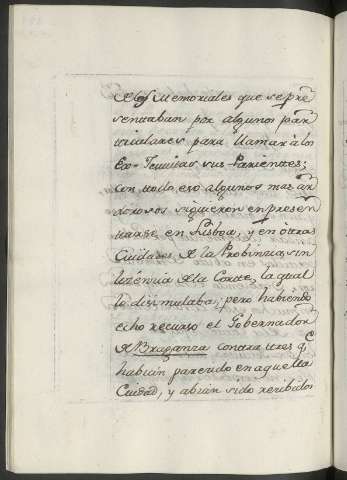 de los Memoriales que se pre
sentaban por algunos par
ticulares para llamar à los
Ex-Jesuitas sus Parientes;
con todo eso algunos mas ar
dorosos siguieron en presen
tarse en Lisboa, y en òtras
Ciudades de la Probincia sin
lizencia de la Corte, la qual
lo disimulaba; pero habiendo
echo recurso el Gobernador
de Braganza contra tres q.e
habian parecido en aquella
Ciudad, y abian sido recibidos